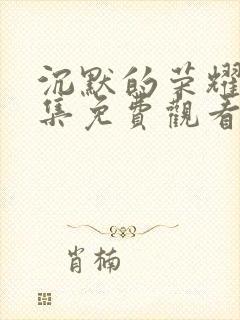 沉默的荣耀
集免費觀看
肖楠